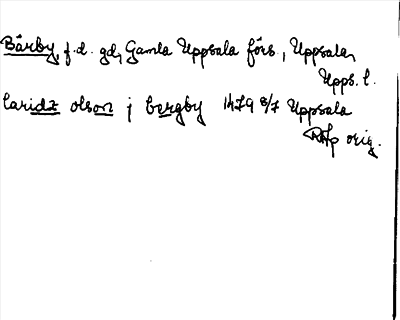 Bärby, f.d. gd, Gamla Uppsala förs., Uppsala,
Upps. l.
laridz olson j bergby 1479 8/7 Uppsala
RAp orig.